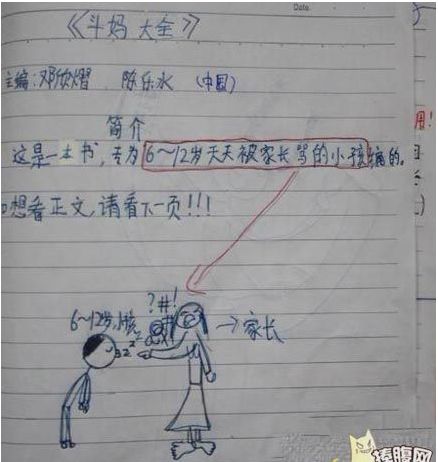 《斗妈大全》
主编:邓欣熠 陈乐水 (中国)
简介
这是一本书,专为6~12岁天天被家长骂的小孩编的。
想看正文,请看下一页!!!
?#!
6~12岁小孩
→家长
zzz
Date.
用!
捧腹网